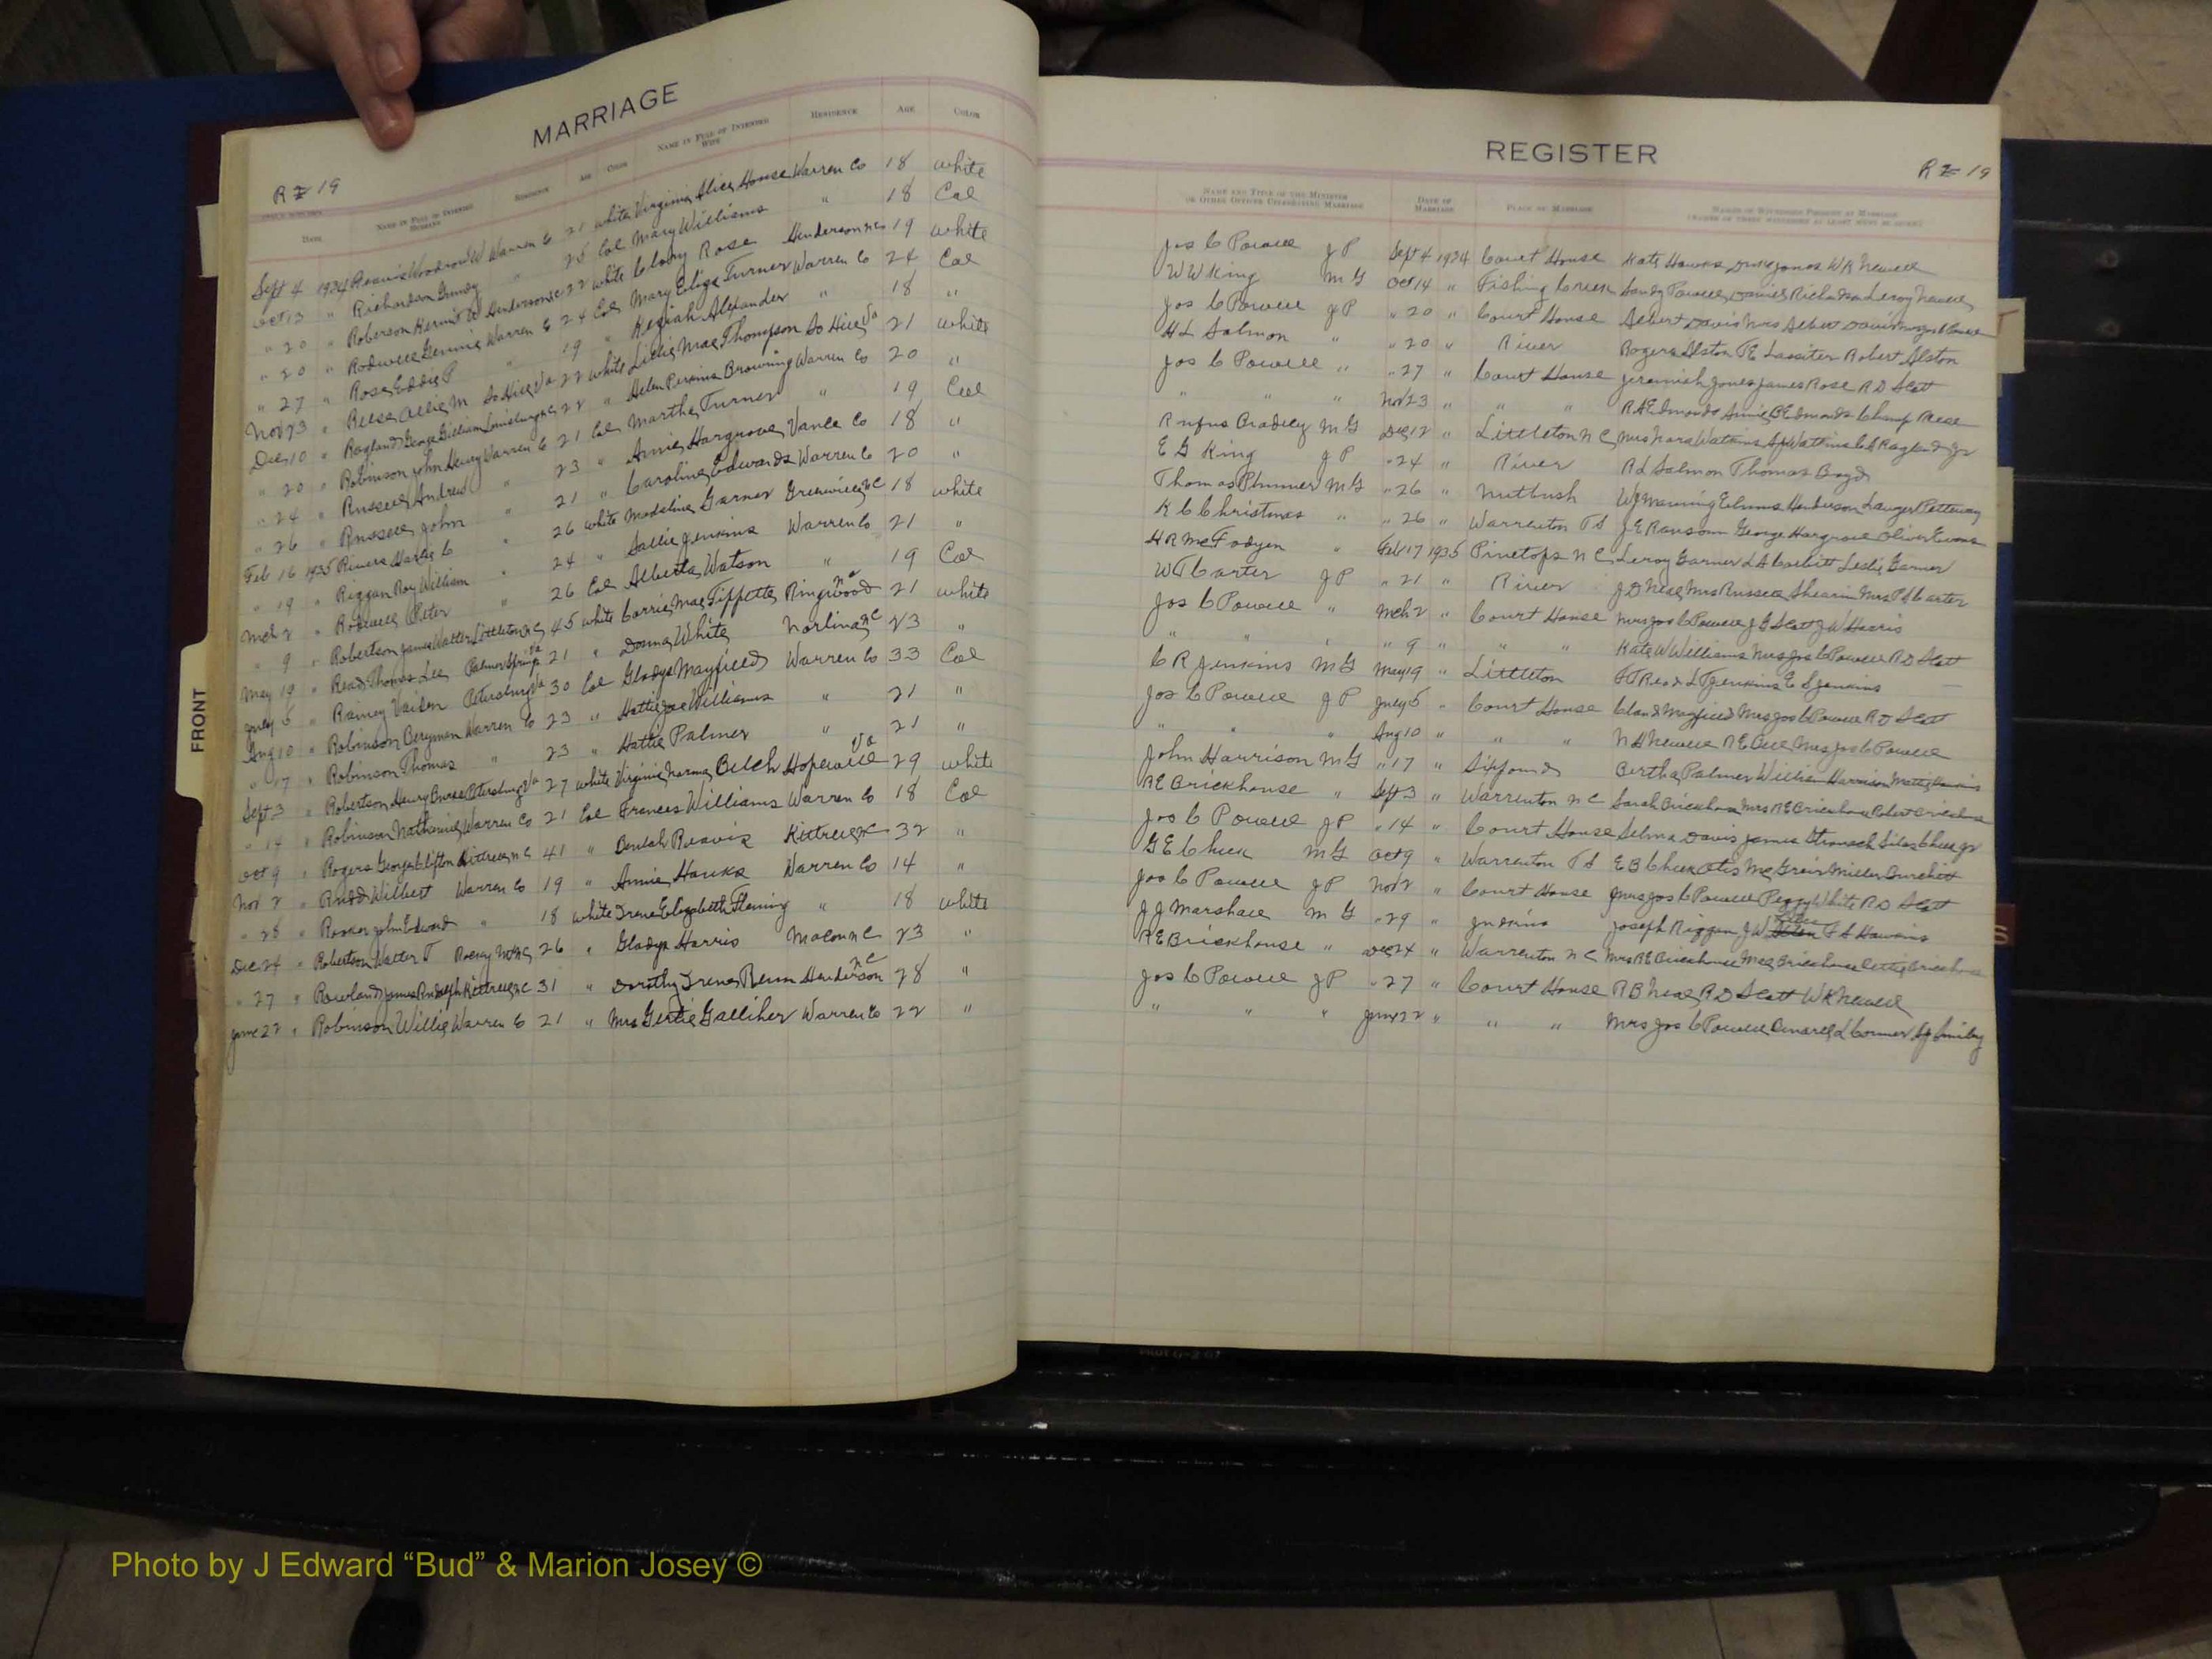 MARRIAGE
R 19
DATE
NAME IN FULL OF INTENDED HUSBAND
RESIDENCE
AGE
COLOR
NAME IN FULL OF INTENDED WIFE
RESIDENCE
AGE
COLOR
Sept 4 1934 Reavis Woodrow W Warren Co 21 white Virginia Alice House Warren Co 18 white
Oct 13 " Richardson " 25 Col Mary Williams " 18 Col
" 20 " Roberson Kermit Henderson NC 22 white Rose Henderson NC 19 white
" 20 " Rodwell Warren Co 24 Col Mary Eliza Turner Warren Co 24 Col
" 27 " Ross Eddie P " 19 " Keziah Alexander " 18 "
Nov 23 " Reese Allie M So Hill Va 22 white Lillie Mae Thompson So Hill Va 21 white
Dec 10 " Ragland George Gilliam Louisburg NC 22 " Helen Perkins Browning Warren Co 20 "
" 20 " Robinson John Henry Warren Co 21 Col Martha Turner " 19 Col
" 24 " Russell Andrew " 23 " Annie Hargrove Vance Co 18 "
" 26 " Russell John " 21 " Caroline Edwards Warren Co 20 "
Feb 16 1935 Rivers C " 26 white Madeline Garner Greenville NC 18 white
" 19 " Riggan Roy William " 24 " Sallie Jenkins Warren Co 21 "
Mch 2 " Rodwell Peter " 26 Col Alberta Watson " 19 Col
" 9 " Robertson James Walter Littleton NC 45 white Carrie Mae Tippette Ringwood NC 21 white
May 19 " Read Thomas Lee Palmer Springs Va 21 " Donna White Norlina NC 23 "
July 6 " Rainey Vaiden Petersburg Va 30 Col Gladys Mayfield Warren Co 33 Col
Aug 10 " Robinson Berryman Warren Co 23 " Hattie Williams " 21 "
" 17 " Robinson Thomas " 23 " Hattie Palmer " 21 "
Sept 3 " Robertson Henry Petersburg Va 27 white Virginia Norma Belch Hopewell Va 29 white
" 14 " Robinson Nathaniel Warren Co 21 Col Frances Williams Warren Co 18 Col
Oct 9 " Rogers George Clifton Kittrell NC 41 " Beulah Reavis Kittrell NC 32 "
Nov 2 " Rudd Wilbert Warren Co 19 " Annie Hawks Warren Co 14 "
" 28 " Rooker John Edward " 18 white Irene Elizabeth Fleming " 18 white
Dec 24 " Robertson Walter T Rocky Mt NC 26 " Gladys Harris Macon NC 23 "
" 27 " Rowland James Rudolph Kittrell NC 31 " Dorothy Irene Henderson NC 28 "
June 22 " Robinson Willie Warren Co 21 " Mrs Gertie Galliher Warren Co 22 "
FRONT
REGISTER
R 19
NAME AND TITLE OF THE MINISTER OR OTHER OFFICER CELEBRATING MARRIAGE
DATE OF MARRIAGE
PLACE OF MARRIAGE
NAMES OF WITNESSES PRESENT AT MARRIAGE
Jos C Powell J P Sept 4 1934 Court House Kate Hawks Duke Jones W R Newell
W W King M G Oct 14 " Fishing Creek Sandy Powell Daniel Richardson Leroy
Jos C Powell J P " 20 " Court House Albert Davis Mrs Albert Davis Mrs Jos C Powell
H L Salmon " " 20 " River Rogers Alston T E Lassiter Robert Alston
Jos C Powell " " 27 " Court House Jeremiah Jones James Rose R D Scott
" " " Nov 23 " " " R A Edmonds Annie B Edmonds Champ Reese
Rufus Bradley M G Dec 12 " Littleton N C Mrs Nora Watkins Watkins Ragland Jr
E G King J P " 24 " River R L Salmon Thomas Boyd
Thomas Plummer M G " 26 " Nutbush W J Manning Henderson Petteway
K C Christmas " " 26 " Warrenton T S J E Ransom George Hargrove Oliver Evans
H R McFadyen " Feb 17 1935 Pinetops N C Leroy Garner L A Corbitt Leslie Garner
W T Carter J P " 21 " River J D Neal Mrs Russell Shearin Mrs P S Carter
Jos C Powell " Mch 2 " Court House Mrs Jos C Powell J G Scott J W Harris
" " " " 9 " " " Kate W Williams Mrs Jos C Powell R D Scott
C R Jenkins M G May 19 " Littleton Read L T Jenkins E S Jenkins
Jos C Powell J P July 6 " Court House Mayfield Mrs Jos C Powell R D Scott
" " " Aug 10 " " " Newell Mrs Jos C Powell
John Harrison M G " 17 " Sixpound Bertha Palmer William Harrison Mattie Hawkins
R E Brickhouse " Sept 3 " Warrenton N C Sarah Brickhouse Mrs R E Brickhouse Robert Brickhouse
Jos C Powell J P " 14 " Court House Selma Davis James
G E Cheek M G Oct 9 " Warrenton T S E B Cheek Otis McGrier Burchett
Jos C Powell J P Nov 2 " Court House Mrs Jos C Powell Peggy White R D Scott
J J Marshall M G " 29 " Joseph Riggan J W
R E Brickhouse " Dec 24 " Warrenton N C Mrs R E Brickhouse
Jos C Powell J P " 27 " Court House R B Neal R D Scott W R Newell
" " " June 22 " " " Mrs Jos C Powell
Photo by J Edward “Bud” & Marion Josey ©